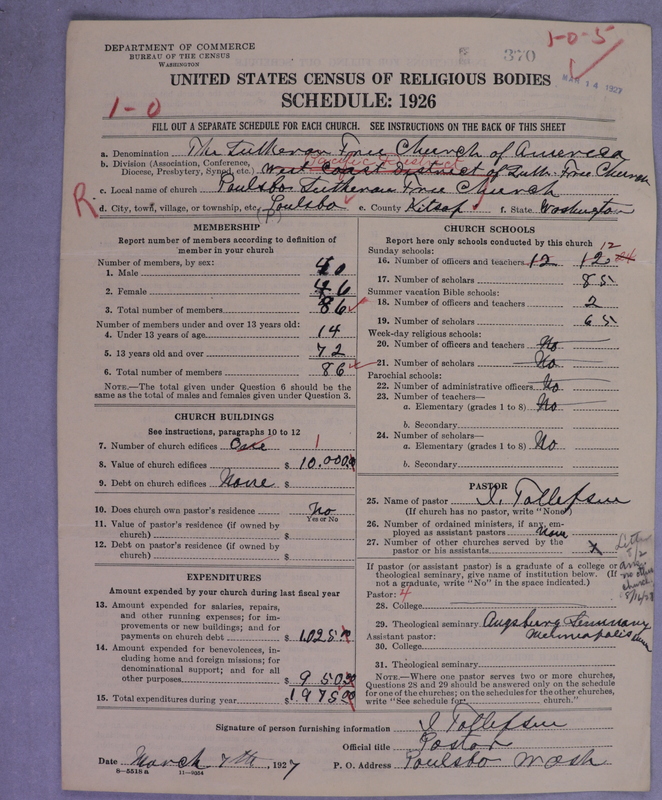 DEPARTMENT OF COMMERCE
BUREAU OF THE CENSUS
WASHINGTON
370
1-0-5
MAR 14 1927
UNITED STATES CENSUS OF RELIGIOUS BODIES
SCHEDULE: 1926
1-0
FILL OUT A SEPARATE SCHEDULE FOR EACH CHURCH. SEE INSTRUCTIONS ON THE BACK OF THIS SHEET
a. Denomination The Lutheran Free Church of America
Pacific District
b. Division (Association, Conference, Diocese, Presbytery, Synod, etc.) West Coast District of Luth. Free Church
c. Local name of church Poulsbo Lutheran Free Church
R d. City, town, village, or township, etc. Poulsbo e. County Kitsap f. State Washington
MEMBERSHIP
Report number of members according to definition of member in your church
Number of members by sex:
1. Male 40
2. Female 46
3. Total number of members 86
Number of members under and over 13 years old:
4. Under 13 years of age 14
5. 13 years old and over 72
6. Total number of members 86
NOTE.—The total given under Question 6 should be the same as the total of males and females given under Question 3.
CHURCH BUILDINGS
See instructions, paragraphs 10 to 12
7. Number of church edifices One 1
8. Value of church edifices $ 10.000.00
9. Debt on church edifices None $
10. Does church own pastor's residence No
Yes or No
11. Value of pastor's residence (if owned by church) $
12. Debt on pastor's residence (if owned by church) $
EXPENDITURES
Amount expended by your church during last fiscal year
13. Amount expended for salaries, repairs, and other running expenses; for improvements or new buildings; and for payments on church debt $ 1,025.00
14. Amount expended for benevolences, including home and foreign missions; for denominational support; and for all other purposes $ 950.00
15. Total expenditures during year $ 1975.00
CHURCH SCHOOLS
Report here only schools conducted by this church
Sunday schools:
12
16. Number of officers and teachers 12 12
17. Number of scholars 85
Summer vacation Bible schools:
18. Number of officers and teachers 2
19. Number of scholars 65
Week-day religious schools:
20. Number of officers and teachers No
21. Number of scholars No
Parochial schools:
22. Number of administrative officers No
23. Number of teachers—
a. Elementary (grades 1 to 8) No
b. Secondary
24. Number of scholars—
a. Elementary (grades 1 to 8) No
b. Secondary
PASTOR
25. Name of pastor I. Tollefsen
(If church has no pastor, write "None")
26. Number of ordained ministers, if any, employed as assistant pastors None
27. Number of other churches served by the pastor or his assistants
If pastor (or assistant pastor) is a graduate of a college or theological seminary, give name of institution below. (If not a graduate, write "No" in the space indicated.)
Pastor: 4
28. College
29. Theological seminary Augsburg Seminary
Minneapolis Minn
Assistant pastor:
30. College
31. Theological seminary
NOTE.—Where one pastor serves two or more churches, Questions 28 and 29 should be answered only on the schedule for one of the churches; on the schedules for the other churches, write "See schedule for church."
Signature of person furnishing information I Tollefsen
Official title Pastor
Date March 7th, 1927 P. O. Address Poulsbo Wash
8—5518 a 11—9054